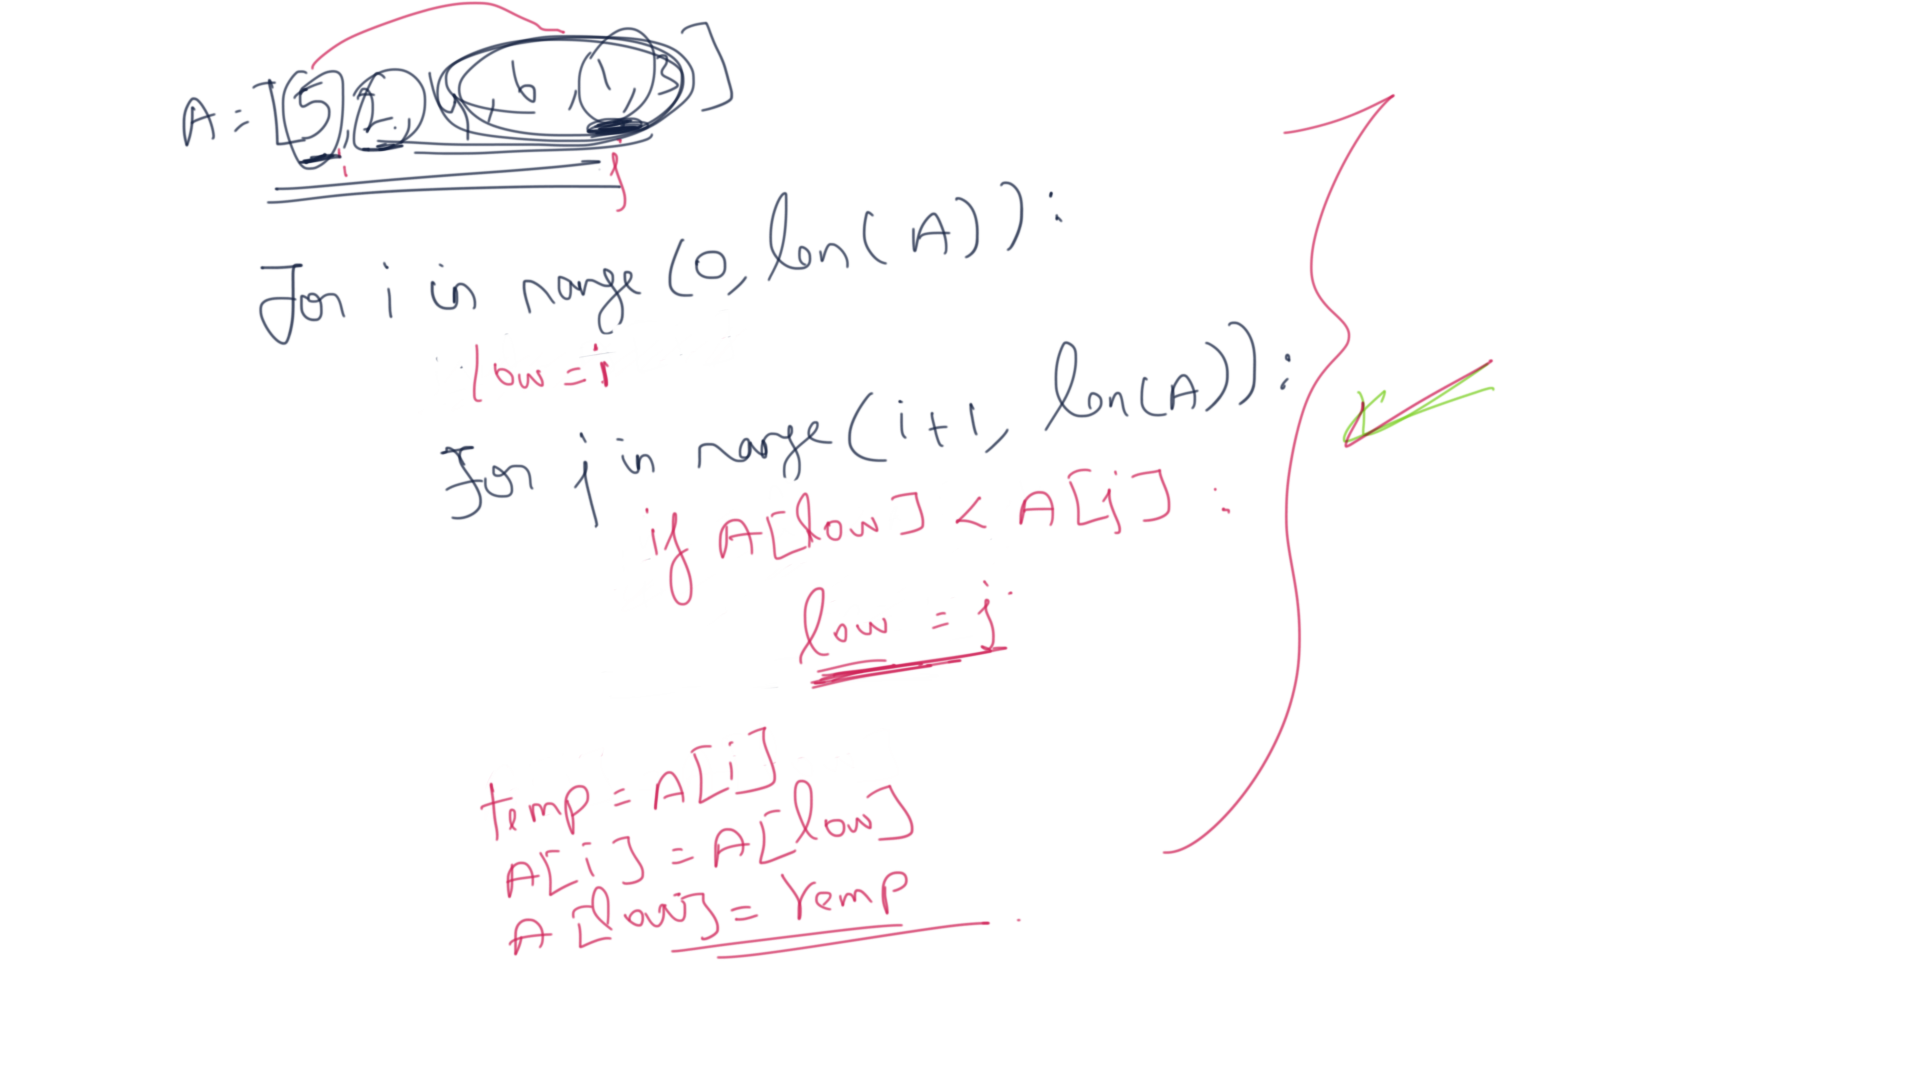 A = [5, 2, 4, 6, 1, 3]
i j
for i in range (0, len(A)):
low = i
for j in range(i+1, len(A)):
if A[low] < A[j] :
low = j
temp = A[i]
A[i] = A[low]
A[low] = Temp